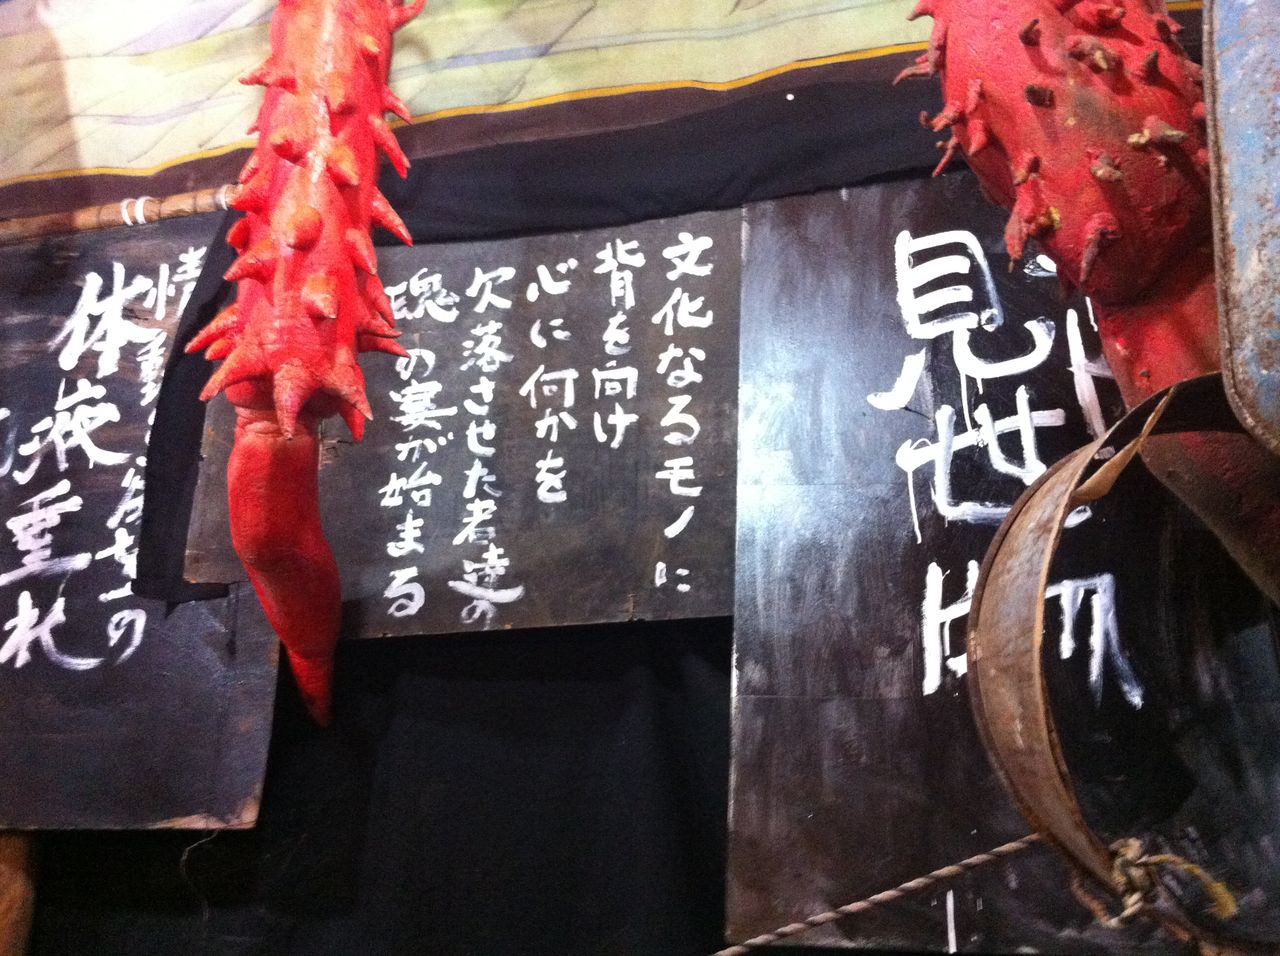 見世物
文化なるモノに
背を向け
心に何かを
欠落させた者達の
魂の宴が始まる
情動
の
体液垂れ